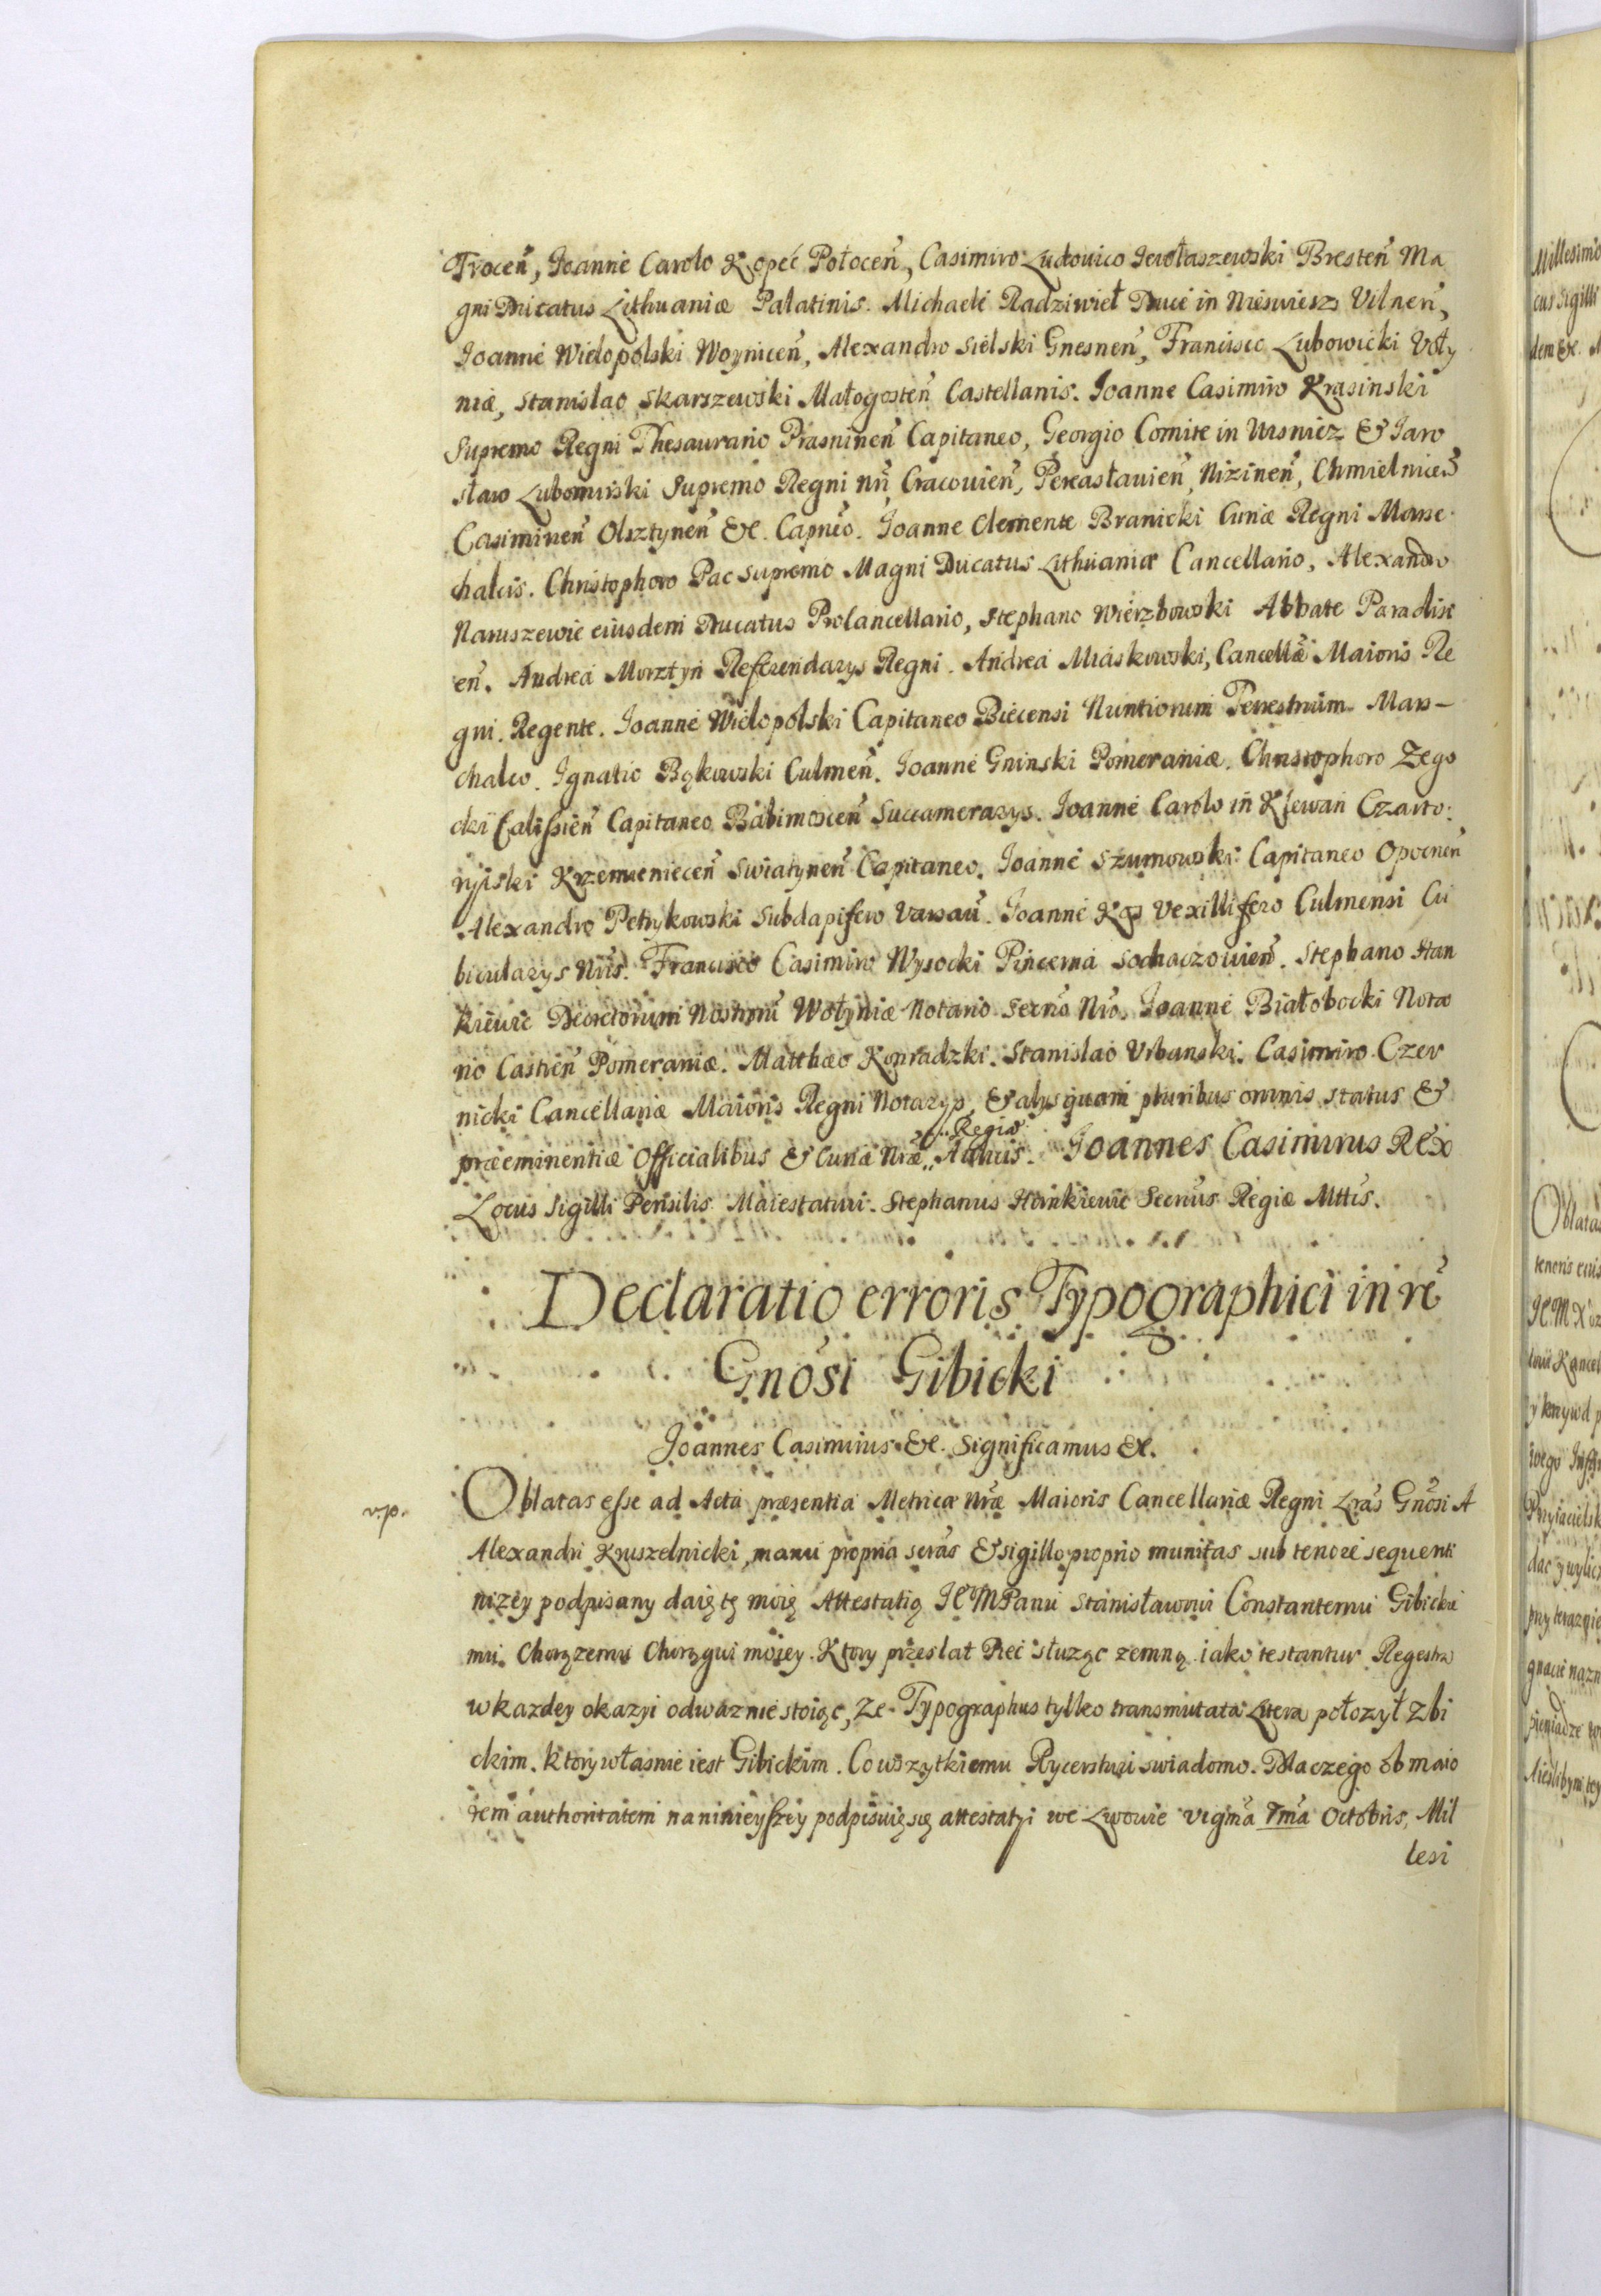 Trocen̄, Joanne Carolo Kopeć Połocen̄, Casimiro Ludovico Jewłaszewski Bresten̄ Ma
gni Ducatus Lithuaniæ Palatinis. Michaele Radziwieł Duce in Nieswiesz Vilnen̄,
Joanne Wielopolski Woynicen̄, Alexandro Sielski Gnesnen̄, Francisco Lubowicki Voły
niæ, Stanislao Skarszewski Małogosten̄ Castellanis. Joanne Casimiro Krasinski
Supremo Regni Thesaurario Prasninen̄ Capitaneo, Georgio Comite in Wisnicz & Jaro
sław Lubomirski Supremo Regni Nr̄i Cracovien̄, Pereasłavien̄, Nizinen̄, Chmielnicen̄
Casimiren̄ Olsztynen̄ &c. Capn̄eo. Joanne Clemente Branicki Curiæ Regni Marse
chalcis. Christophoro Pac Supremo Magni Ducatus Lithuaniæ Cancellario, Alexandro
Naruszewic eiusdem Ducatus Procancellario, Stephano Wierzbowski Abbate Paradisi
en̄. Andrea Morztyn Referendarys Regni. Andrea Miaskowski, Cancellæ Maioris Re
gni. Regente. Joanne Wielopolski Capitaneo Biecensi Nuntiorum Terrestrium Mars-
chalco. Ignatio Bąkowski Culmen̄. Joanne Gninski Pomeraniæ. Christophoro Zego
cki Calissien̄ Capitaneo Babimoscen̄ Succamerarys. Joanne Carolo in Klewan Czarto:
ryiski Krzemieniecen̄ Swiatynen̄ Capitaneo. Joanne Szumowski Capitaneo Opocnen̄
Alexandro Petrykowski Subdapifero Varsav̄. Joanne Kos Vexillifero Culmensi Cu
bicularys Nr̄is. Francisco Casimiro Wysocki Pincerna Sochaczovien̄. Stephano Han
kiewic Decretorum Nostrorū Wołyniæ Notario Secr̄io Nr̄o. Joanne Białobocki Nota
rio Castren̄ Pomeraniæ. Matthæo Konradzki. Stanislao Urbanski. Casimiro Czer
nicki Cancellariæ Maioris Regni Notarys, & alys quam pluribus omnis status &
præeminentiæ Officialibus & Curiæ Nr̄æ Regiæ Aulicis. Joannes Casimirus Rex
Locus Sigilli Pensilis Maiestatici. Stephanus Hankiewic Secr̄ius Regiæ Mttis.
Declaratio erroris Typographici in re
Gn̄osi Gibicki
Joannes Casimirus &c. Significamus &c.
v.p.
Oblatas esse ad Acta præsentia Metricæ Nr̄æ Maioris Cancellariæ Regni Lr̄as Gn̄osi A
Alexandri Kruszelnicki, manu propria scr̄as & sigillo proprio munitas sub tenore sequenti
nizey podpisany daię tę moię Attestatią JEMPanu Stanisławowi Constantemu Gibickie
mu. Chorązemu Chorągwi moiey. Ktory przeslat Pięć słuząc zemną iako testantur Regestra
w kazdey okazyi odwaznie stoiąc, Ze Typographus tylko transmutata Litera położył Zbi
ckim. ktory własnie iest Gibickim. Co wszytkiemu Rycerstwu swiadomo. Dla czego ob maio
rem authoritatem na ninieyszey podpisuię się attestatyi we Lwowie vigm̄a 7ma Octobris, Mil
lesi